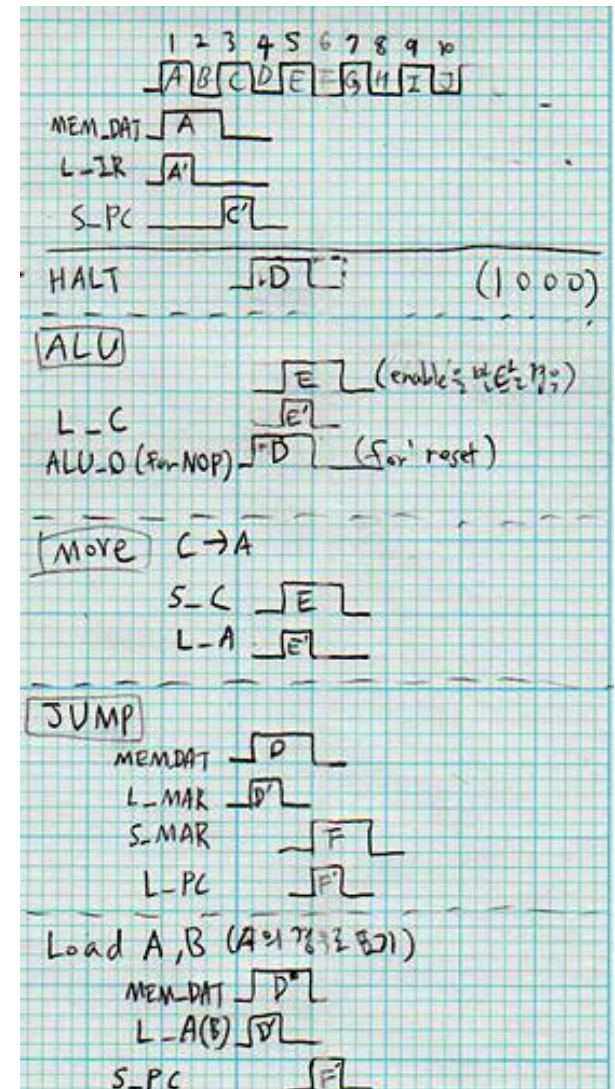 1 2 3 4 5 6 7 8 9 10
A B C D E F G H I J
MEM_DAT A
L-IR A'
S-PC C'
HALT D (1000)
ALU
E (enable을 받을 경우)
L-C E'
ALU_D (for NOP) D (for reset)
Move C→A
S-C E
L-A E'
JUMP
MEMDAT D
L-MAR D'
S-MAR F
L-PC F'
Load A,B (A의 경우로 표기)
MEM_DAT D
L-A(B) D'
S-PC F'